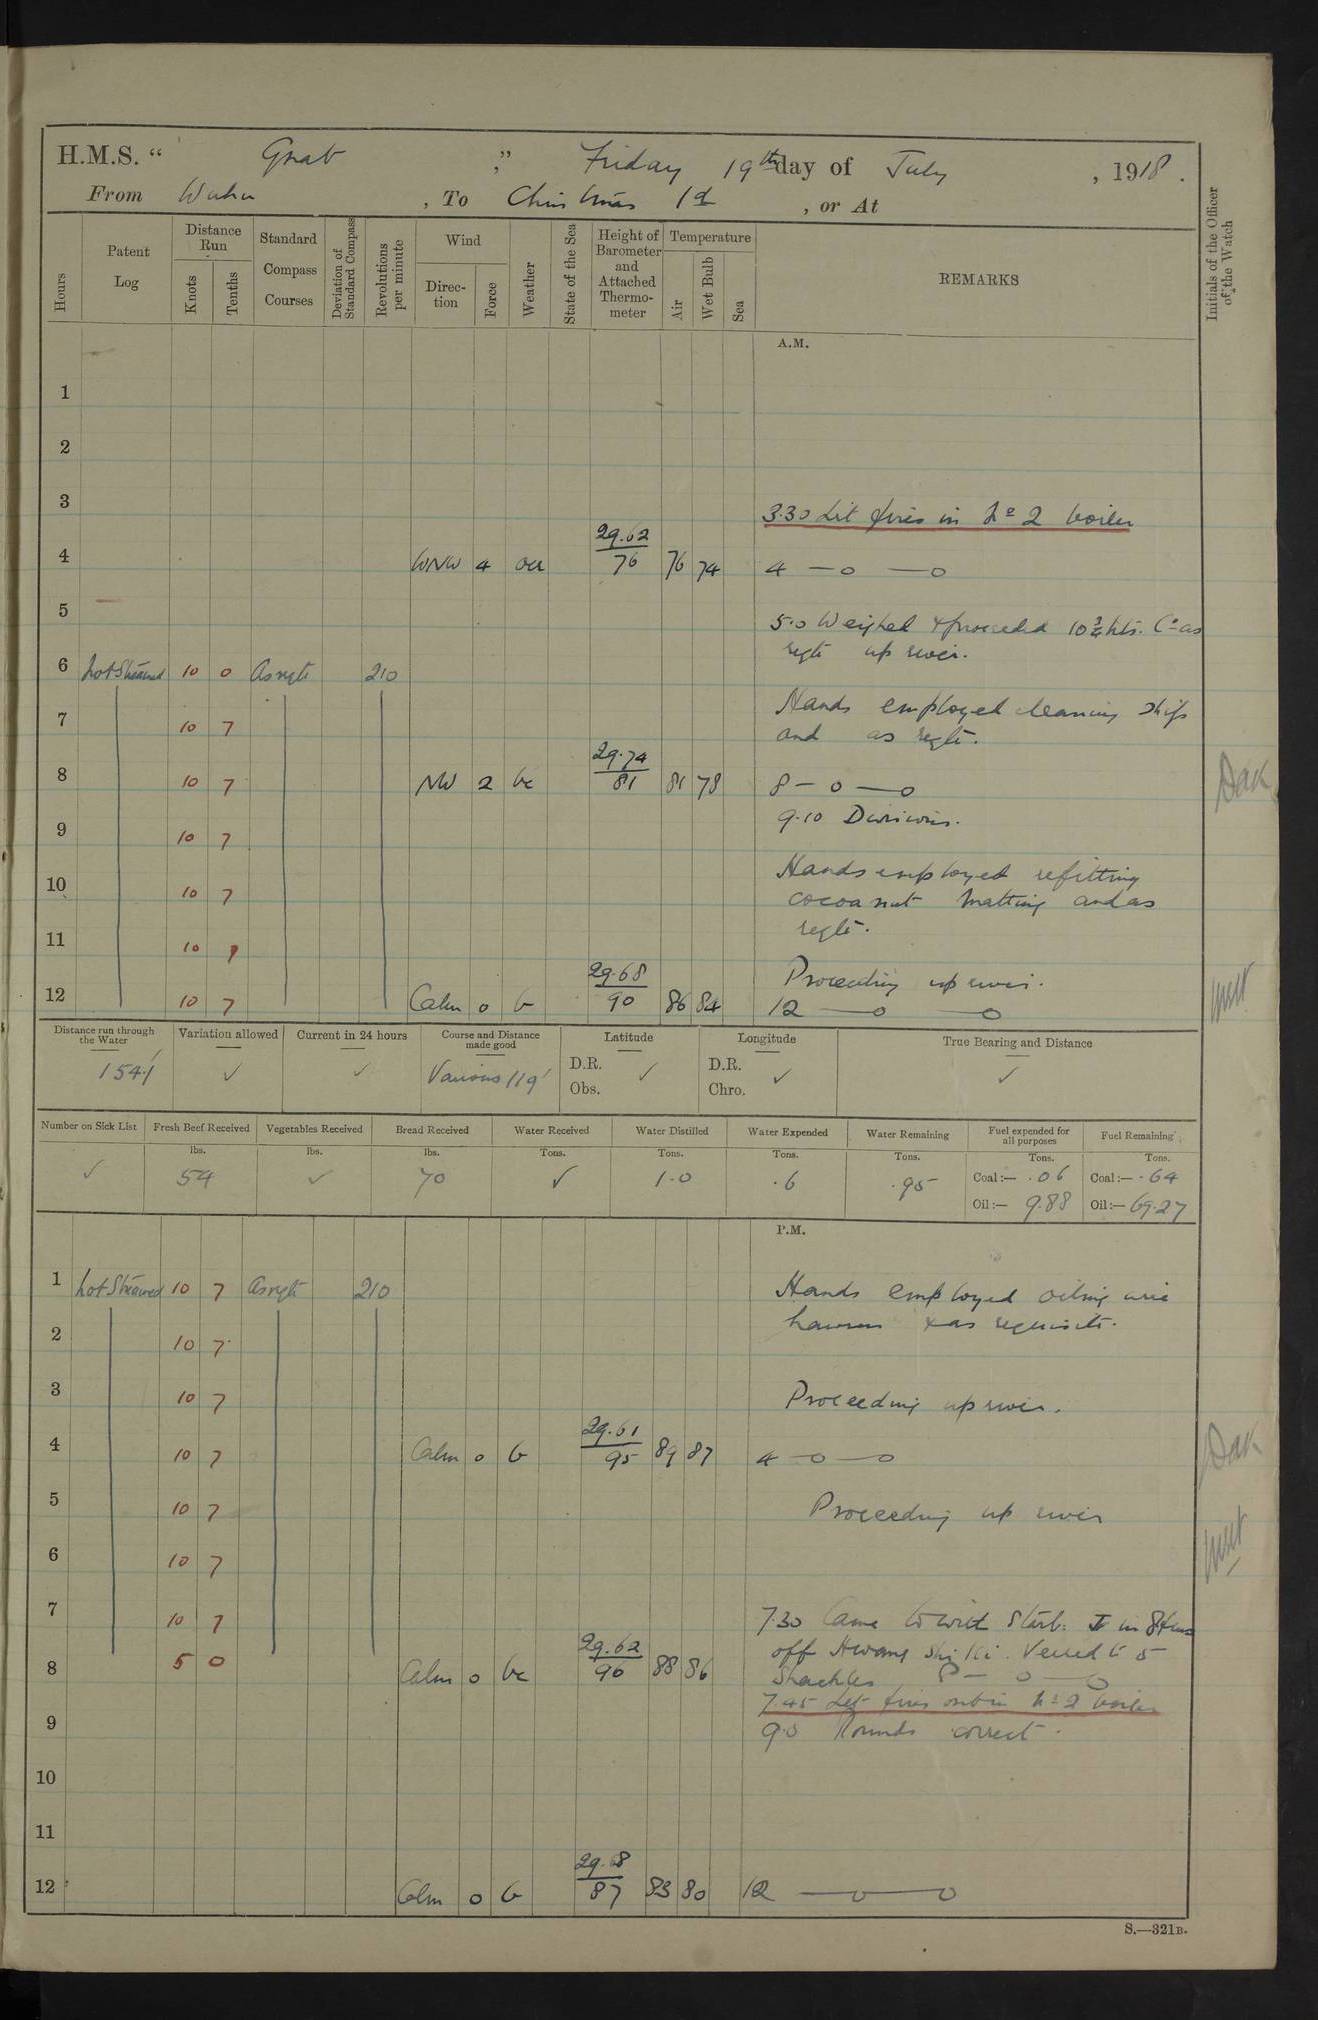 H.M.S. “ Gnat ” Friday 19th day of July , 1918 .
From Wuhu , To Christmas Id , or At
Hours
Patent Log
Distance Run
Knots
Tenths
Standard Compass Courses
Deviation of Standard Compass
Revolutions per minute
Wind
Direction
Force
Weather
State of the Sea
Height of Barometer and Attached Thermometer
Temperature
Air
Wet Bulb
Sea
REMARKS
Initials of the Officer of the Watch
A.M.
1
2
3
3.30 Lit fires in No 2 boiler
4 WNW 4 29.62 76 76 74 4 — o — o
5
5.0 Weighed & proceeded 10 3/4 kts. Co as
reqte up river.
6 Not Streamed 10 0 As reqte 210
Hands employed cleaning ship
7 10 7
and as reqte.
8 10 7 NW 2 bc 29.74 81 81 78 8 — o — o
Dak
9.10 Divisions.
9 10 7
Hands employed refitting
10 10 7
cocoanut matting and as
reqte.
11 10 7
Proceeding up river.
12 10 7 Calm 0 b 29.68 90 86 84 12 — o — o
Distance run through the Water
Variation allowed
Current in 24 hours
Course and Distance made good
Latitude
Longitude
True Bearing and Distance
154.1 ✓ ✓ Various 119' D.R. Obs. ✓ D.R. Chro. ✓ ✓
Number on Sick List
Fresh Beef Received
Vegetables Received
Bread Received
Water Received
Water Distilled
Water Expended
Water Remaining
Fuel expended for all purposes
Fuel Remaining
lbs. lbs. lbs. Tons. Tons. Tons. Tons. Tons. Tons.
✓ 54 ✓ 70 ✓ 1.0 .6 .95 Coal:— .06 Coal:— .64
Oil:— 9.88 Oil:— 69.27
P.M.
1 Not Streamed 10 7 As reqte 210 Hands employed oiling wire
hawsers & as requisite.
2 10 7
3 10 7 Proceeding up river.
4 10 7 Calm 0 b 29.61 95 89 87 4 — o — o
Dak
5 10 7 Proceeding up river
6 10 7
7 10 7 7.30 Came to with Starb: in
off Hwang Shi Ki. Veered to 5
8 5 0 Calm 0 bc 29.62 90 88 86 Shackles 8 — o — o
7.45 Let fires out in No 2 boiler
9 9.0 Rounds correct.
10
11
12 Calm 0 b 29.8 87 83 80 12 — o — o
S.—321B.